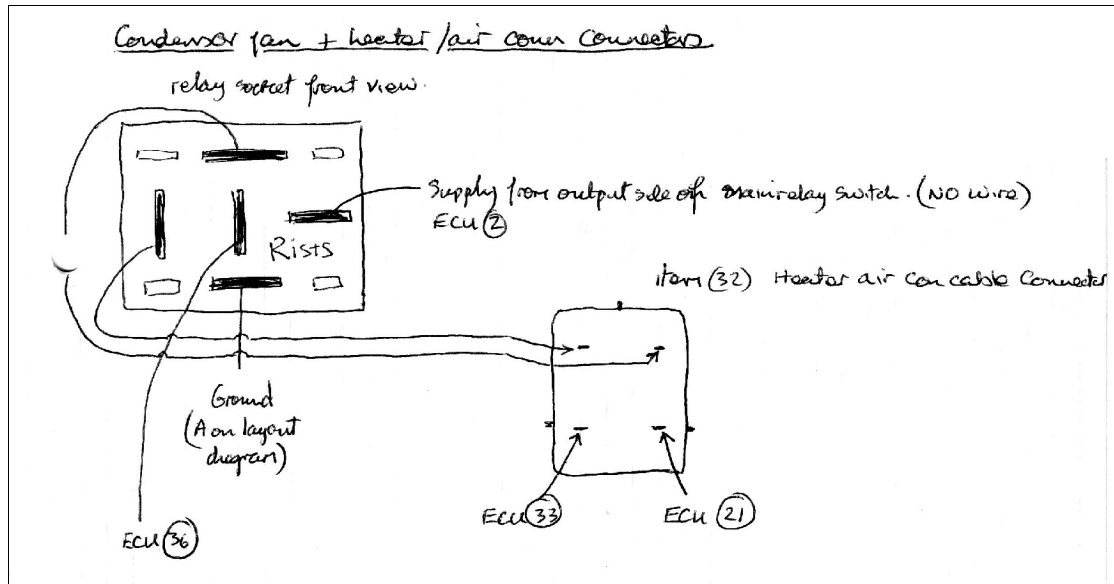 Condensor fan + heater/air conn connectors
relay socket front view.
Supply from output side of main relay switch. (NO wire)
ECU 2
Rists
item (32) Heater air con cable connector
Ground
(A on layout
diagram)
ECU 33
ECU 21
ECU 36